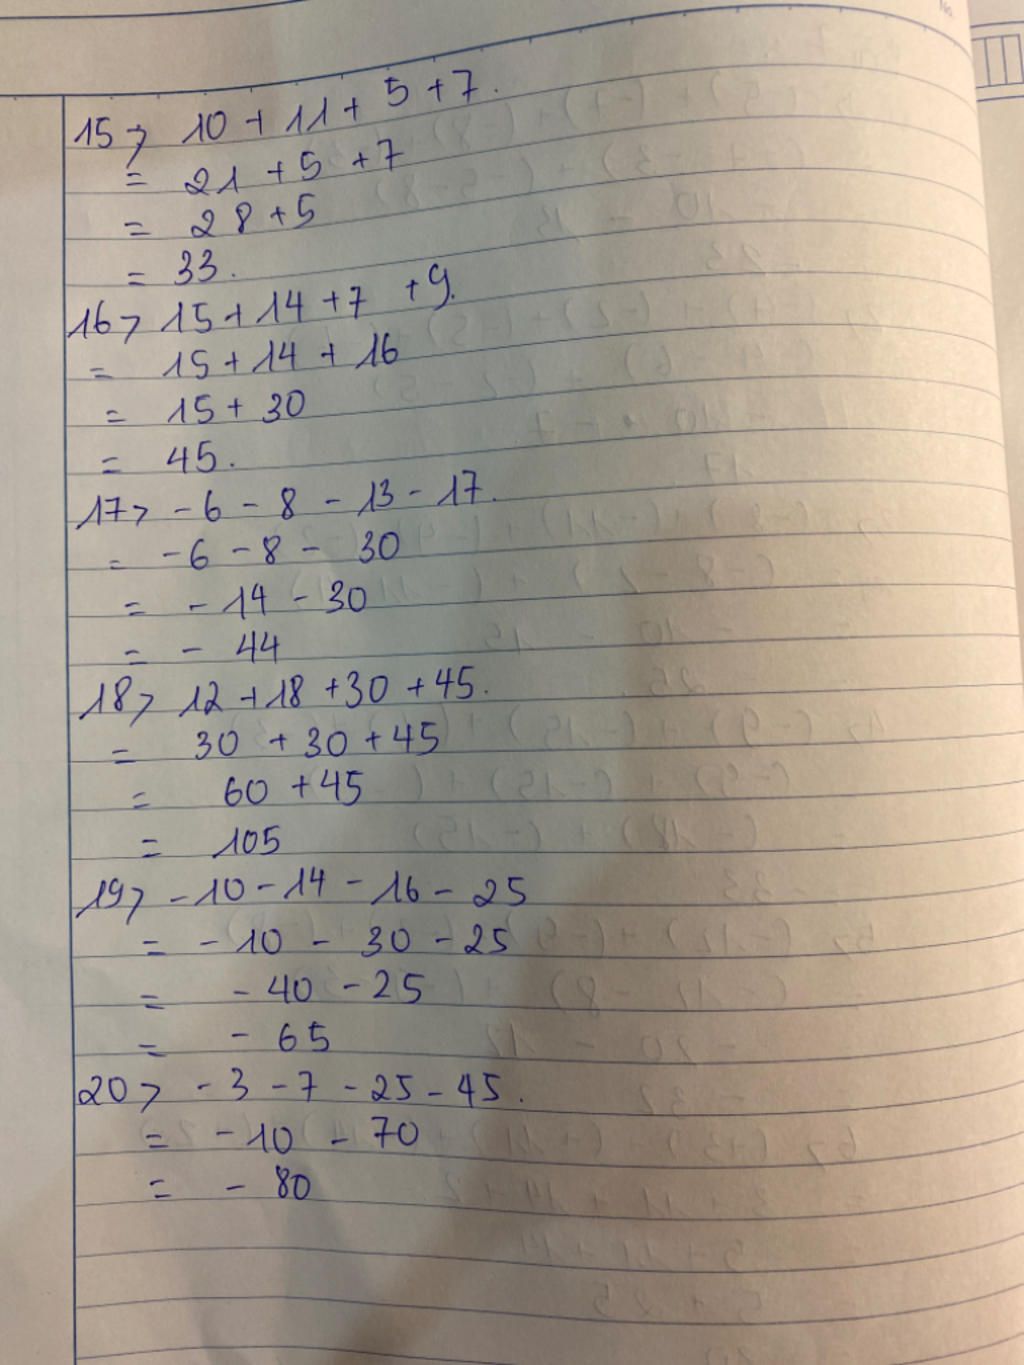 15> 10 + 11 + 5 + 7.
= 21 + 5 + 7
= 28 + 5
= 33.
16> 15 + 14 + 7 + 9.
= 15 + 14 + 16
= 15 + 30
= 45.
17> - 6 - 8 - 13 - 17.
= - 6 - 8 - 30
= - 14 - 30
= - 44
18> 12 + 18 + 30 + 45.
= 30 + 30 + 45
= 60 + 45
= 105
19> - 10 - 14 - 16 - 25
= - 10 - 30 - 25
= - 40 - 25
= - 65
20> - 3 - 7 - 25 - 45.
= - 10 - 70
= - 80